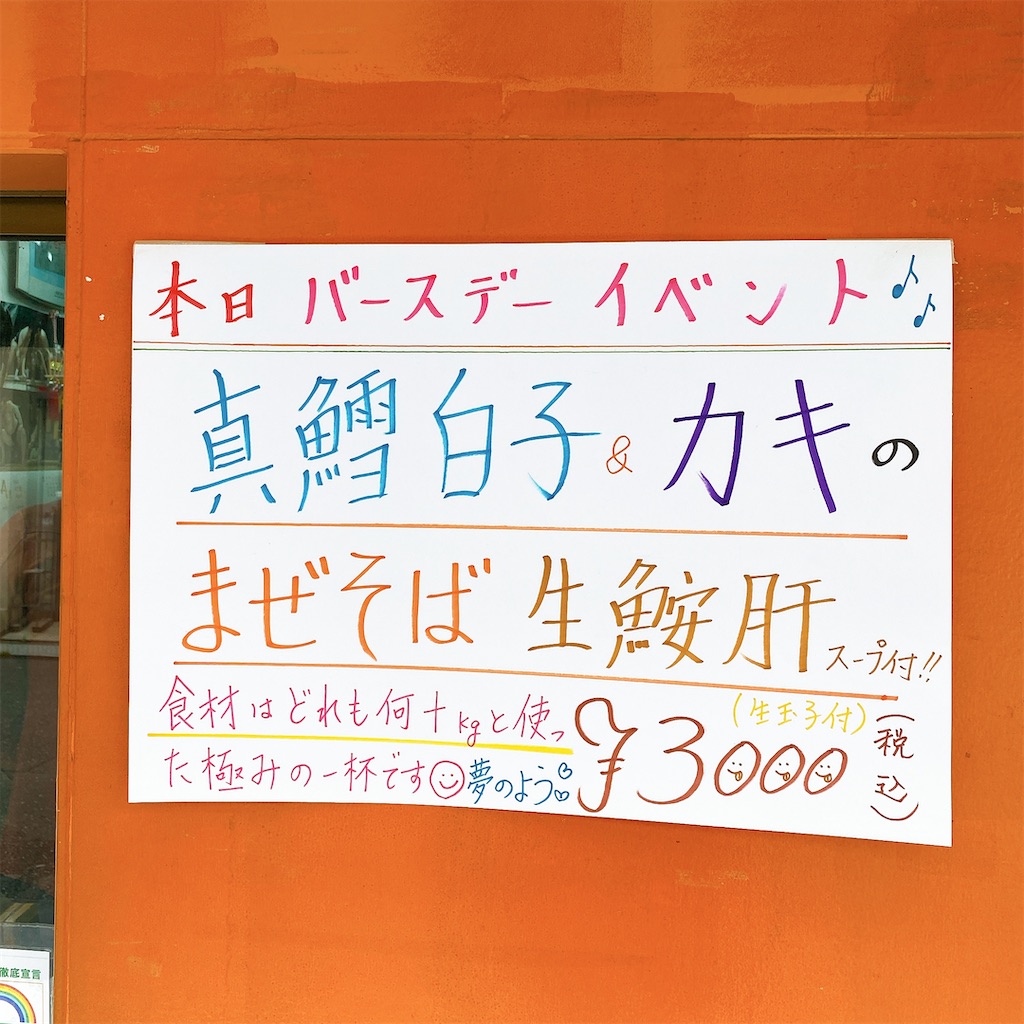 本日 バースデー イベント♪♪
真鱈 白子 & カキ の
まぜそば 生鮟肝 スープ付!!
食材はどれも何十kgと使っ
た極みの一杯です☺夢のよう♡
(生玉子付)
¥3000 (税込)
徹底宣言